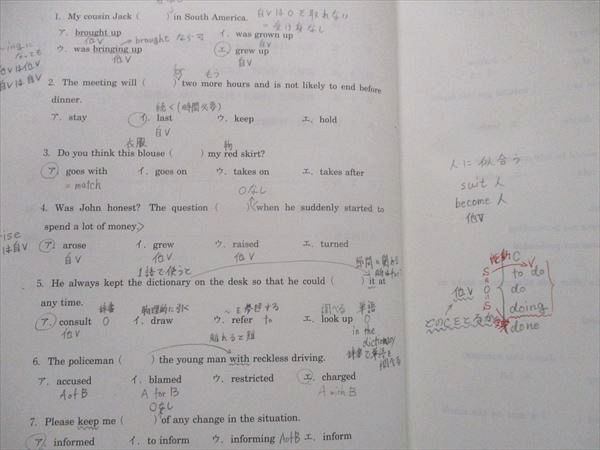 1. My cousin Jack (   ) in South America.
自Vは Oを取れない
= 受け身なし
ア. brought up　イ. was grown up
他V　brought なら可　自V
ウ. was bringing up　エ. grew up
他V　自V
2. The meeting will (   ) two more hours and is not likely to end before
もう
dinner.
続く(時間必要)
ア. stay　イ. last　ウ. keep　エ. hold
自V
衣服　物
3. Do you think this blouse (   ) my red skirt?
ア. goes with　イ. goes on　ウ. takes on　エ. takes after
= match
Oなし
4. Was John honest? The question (   ) (when he suddenly started to
spend a lot of money.)
ア. arose　イ. grew　ウ. raised　エ. turned
自V　他V　他V
1語で使うと
5. He always kept the dictionary on the desk so that he could (   ) it at
any time.
辞書　物理的に引く　〜を参照する　調べる　単語
ア. consult O　イ. draw　ウ. refer to　エ. look up O
他V
in the
dictionary
6. The policeman (   ) the young man with reckless driving.
ア. accused　イ. blamed　ウ. restricted　エ. charged
A of B　A for B　A with B
Oなし
7. Please keep me (   ) of any change in the situation.
ア. informed　イ. to inform　ウ. informing A of B　エ. inform
人に似合う
suit 人
become 人
他V
C
S　V
S　to do
他V　O　do
S　doing
done